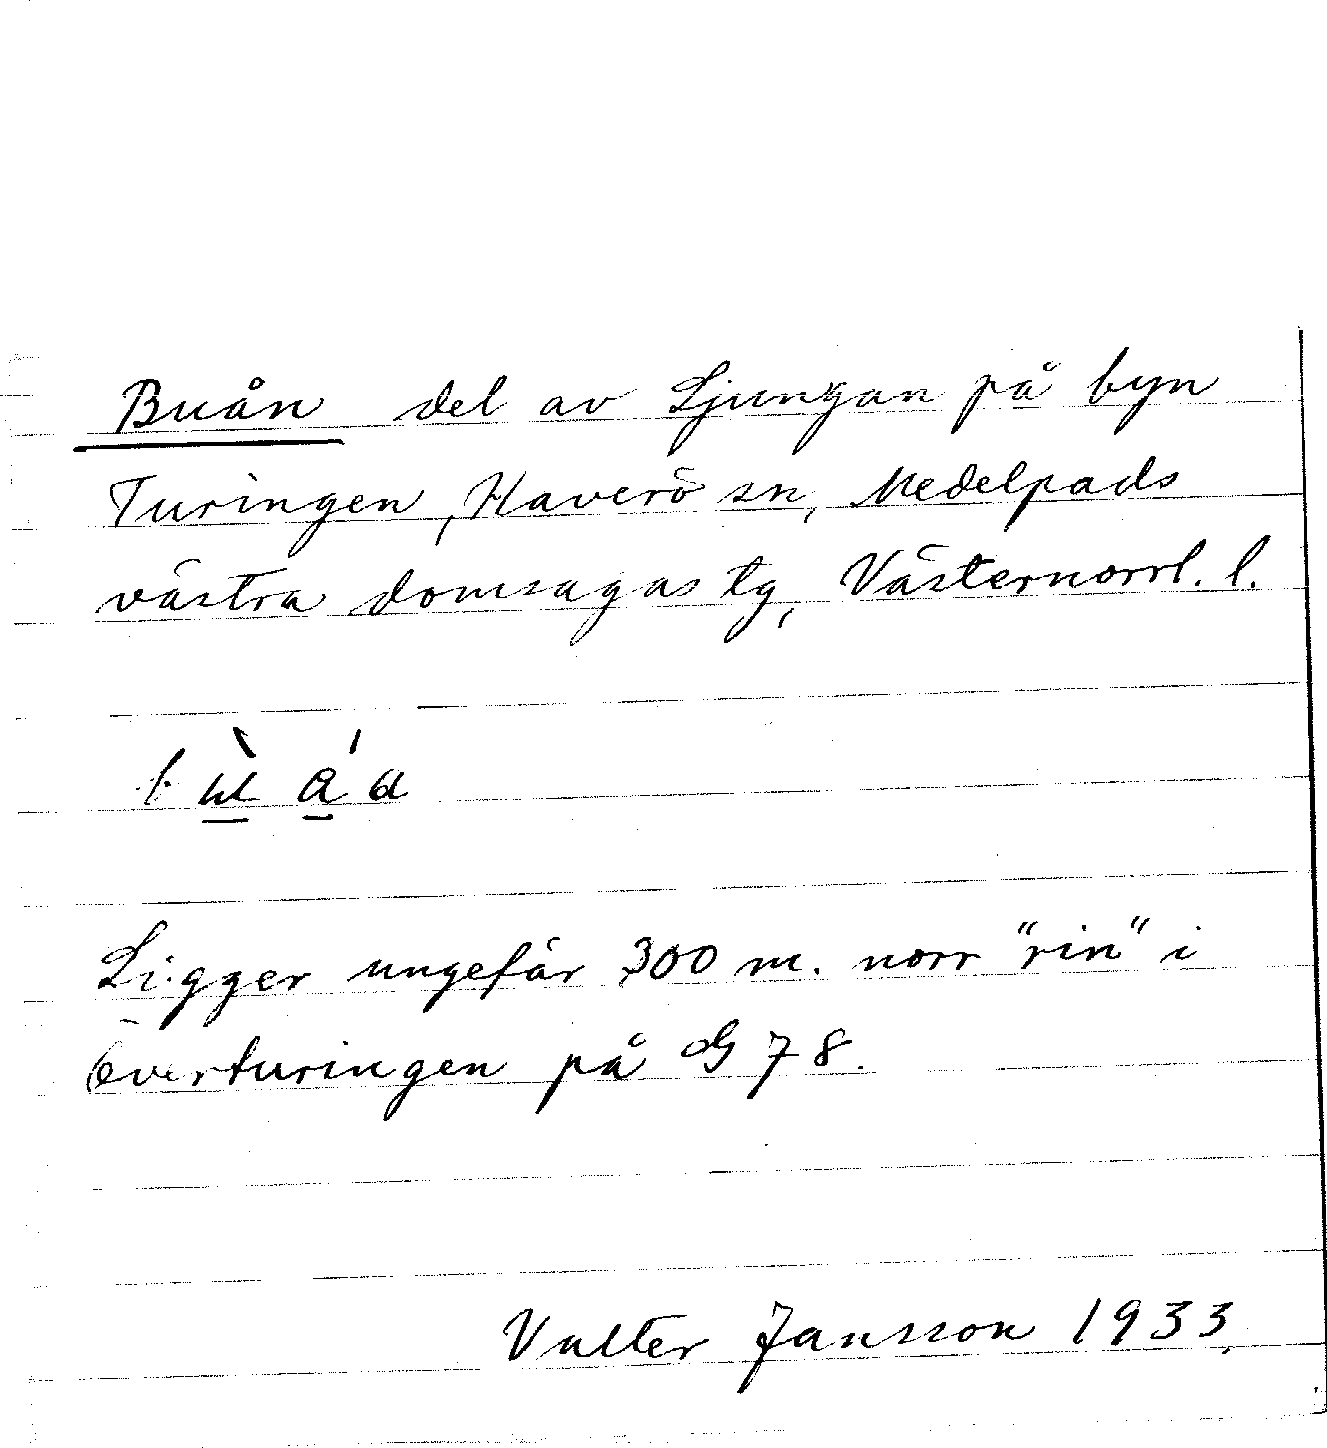 Buån del av Ljungan på byn
Turingen, Haverö sn, Medelpads
västra domsagas tg, Västernorrl. l.
Ligger ungefär 300 m. norr "rin" i
Överturingen på G 78.
Valter Jansson 1933.